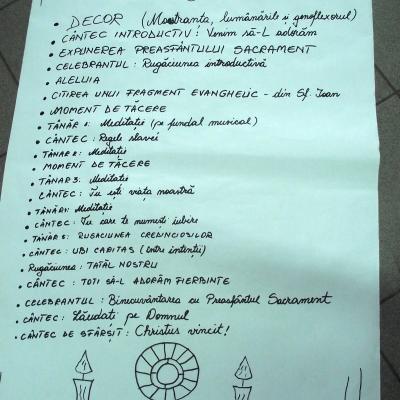 • DECOR (Monstranța, lumânările și genoflexorul)
• CÂNTEC INTRODUCTIV: Venim să-L adorăm
• EXPUNEREA PREASFÂNTULUI SACRAMENT
• CELEBRANTUL: Rugăciunea introductivă
• ALELUIA
• CITIREA UNUI FRAGMENT EVANGHELIC - din Sf. Ioan
• MOMENT DE TĂCERE
• TÂNĂR 1: Meditație (pe fundal musical)
• CÂNTEC: Regele slavei
• TÂNĂR 2: Meditație
• MOMENT DE TĂCERE
• TÂNĂR 3: Meditație
• CÂNTEC: Tu ești viața noastră
• TÂNĂR 4: Meditație
• CÂNTEC: Tu care te numești iubire
• TÂNĂR 5: RUGĂCIUNEA CREDINCIOȘILOR
• CÂNTEC: UBI CARITAS (între intenții)
• Rugăciunea: TATĂL NOSTRU
• CÂNTEC: TOȚI SĂ-L ADORĂM FIERBINTE
• CELEBRANTUL: Binecuvântarea cu Preasfântul Sacrament
• CÂNTEC: Lăudați pe Domnul
• CÂNTEC DE SFÂRȘIT: Christus vincit!